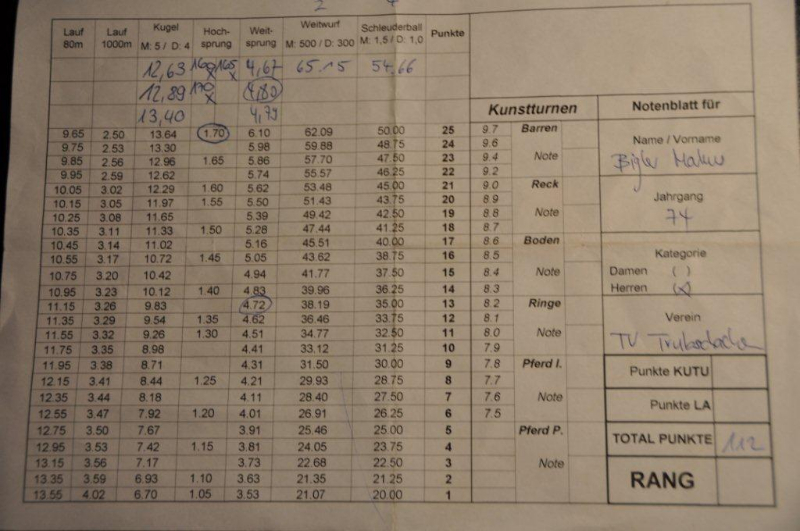 Lauf 80m Lauf 1000m Kugel M: 5 / D: 4 Hoch-sprung Weit-sprung Weitwurf M: 500 / D: 300 Schleuderball M: 1,5 / D: 1,0 Punkte
12,63 160 165 4,67 65.15 54,66
12,89 170 4,80
13,40 4,79
9.65 2.50 13.64 1.70 6.10 62.09 50.00 25
9.75 2.53 13.30 5.98 59.88 48.75 24
9.85 2.56 12.96 1.65 5.86 57.70 47.50 23
9.95 2.59 12.62 5.74 55.57 46.25 22
10.05 3.02 12.29 1.60 5.62 53.48 45.00 21
10.15 3.05 11.97 1.55 5.50 51.43 43.75 20
10.25 3.08 11.65 5.39 49.42 42.50 19
10.35 3.11 11.33 1.50 5.28 47.44 41.25 18
10.45 3.14 11.02 5.16 45.51 40.00 17
10.55 3.17 10.72 1.45 5.05 43.62 38.75 16
10.75 3.20 10.42 4.94 41.77 37.50 15
10.95 3.23 10.12 1.40 4.83 39.96 36.25 14
11.15 3.26 9.83 4.72 38.19 35.00 13
11.35 3.29 9.54 1.35 4.62 36.46 33.75 12
11.55 3.32 9.26 1.30 4.51 34.77 32.50 11
11.75 3.35 8.98 4.41 33.12 31.25 10
11.95 3.38 8.71 4.31 31.50 30.00 9
12.15 3.41 8.44 1.25 4.21 29.93 28.75 8
12.35 3.44 8.18 4.11 28.40 27.50 7
12.55 3.47 7.92 1.20 4.01 26.91 26.25 6
12.75 3.50 7.67 3.91 25.46 25.00 5
12.95 3.53 7.42 1.15 3.81 24.05 23.75 4
13.15 3.56 7.17 3.73 22.68 22.50 3
13.35 3.59 6.93 1.10 3.63 21.35 21.25 2
13.55 4.02 6.70 1.05 3.53 21.07 20.00 1
Kunstturnen
9.7 Barren
9.6
9.4 Note
9.2
9.0 Reck
8.9
8.8 Note
8.7
8.6 Boden
8.5
8.4 Note
8.3
8.2 Ringe
8.1
8.0 Note
7.9
7.8 Pferd l.
7.7
7.6 Note
7.5
Pferd P.
Note
Notenblatt für
Name / Vorname
Bigler
Jahrgang
74
Kategorie
Damen ( )
Herren (x)
Verein
TV
Punkte KUTU
Punkte LA
TOTAL PUNKTE 112
RANG